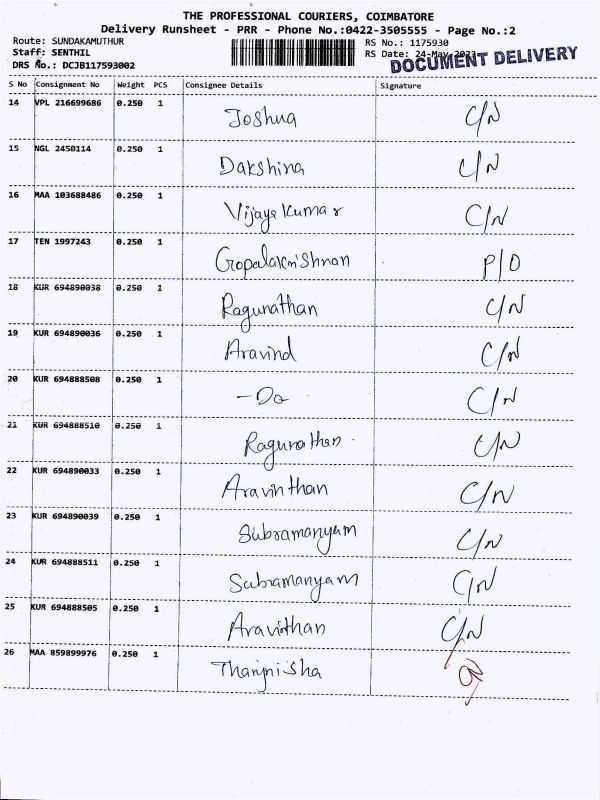 THE PROFESSIONAL COURIERS, COIMBATORE
Delivery Runsheet - PRR - Phone No.:0422-3505555 - Page No.:2
Route: SUNDAKAMUTHUR RS No.: 1175930
Staff: SENTHIL RS Date: 24-May-2023
DRS No.: DCJB117593002 DOCUMENT DELIVERY
S No Consignment No Weight PCS Consignee Details Signature
14 VPL 216699686 0.250 1 Joshua C/N
15 NGL 2450114 0.250 1 Dakshina C/N
16 MAA 103688486 0.250 1 Vijaya Kumar C/N
17 TEN 1997243 0.250 1 Gopalakrishnan P/O
18 KUR 694890038 0.250 1 Ragunathan C/N
19 KUR 694890036 0.250 1 Aravind C/N
20 KUR 694888508 0.250 1 -Do C/N
21 KUR 694888510 0.250 1 Ragunathan C/N
22 KUR 694890033 0.250 1 Aravinthan C/N
23 KUR 694890039 0.250 1 Subramanyam C/N
24 KUR 694888511 0.250 1 Subramanyam C/N
25 KUR 694888505 0.250 1 Aravinthan C/N
26 MAA 859899976 0.250 1